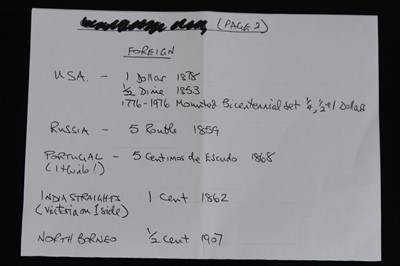 (PAGE 2)
FOREIGN
U.S.A. - 1 Dollar 1878
½ Dime 1853
1776-1976 Mounted Bicentennial set ¼, ½ + 1 Dollar
RUSSIA - 5 Rouble 1859
PORTUGAL - 5 Centimos de Escudo 1868
(I think!)
INDIA STRAIGHTS 1 Cent 1862
(Victoria on 1 side)
NORTH BORNEO ½ Cent 1907